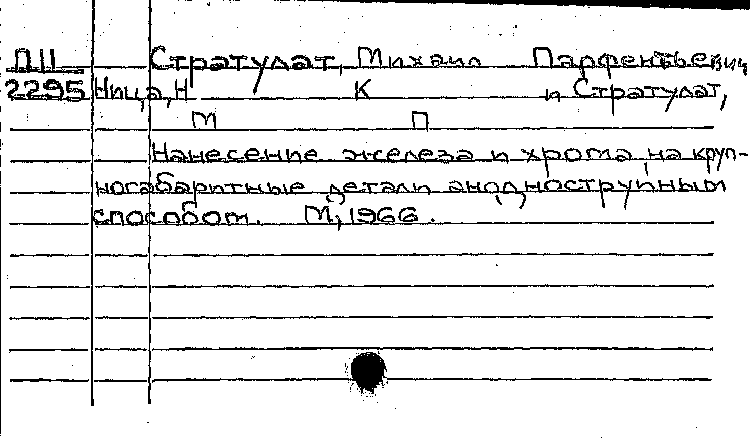 ПII Стратулат, Михаил Парфентьевич
2295 Ница, Н К и Стратулат,
М П
Нанесение железа и хрома на круп-
ногабаритные детали анодноструйным
способом. М, 1966.